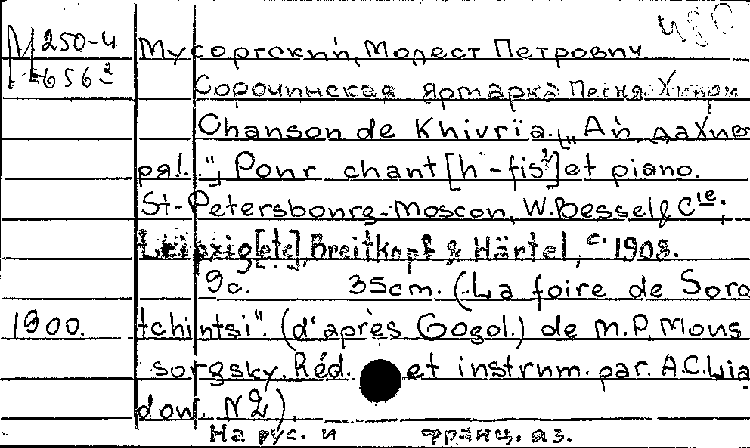 М 250-4 480
656²
Мусоргский, Модест Петрович
Сорочинская ярмарка Песня Хиври
Chanson de Khivrïa. („Ай, да Хиве
ря!. "), Pour chant [h - fis²] et piano.
St-Petersbourg-Moscou, W. Bessel & Cie;
Leipzig [etc], Breitkopf & Härtel, c. 1908.
9c. 35cm. (La foire de Soro
1900. tchintsi". (d'après Gogol.) de M.P. Mous
sorgsky. Réd. et instrum. par. A.C. Lia
dow. N 2).
На рус. и франц. яз.